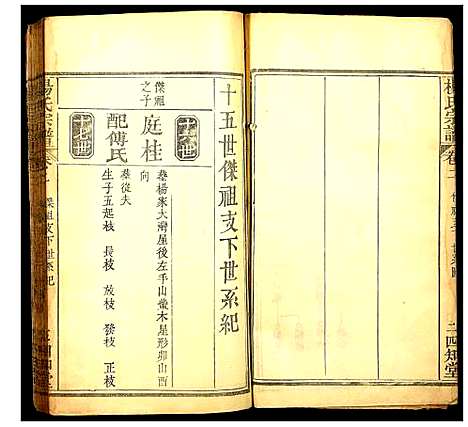 楊氏宗譜
卷二
四知堂
十五世傑祖支下世系紀
傑祖
之子
十五世
庭桂
葬楊家大灣屋後左手山蠻木星形卯山酉
向
配傅氏
葬從夫
生子五起枝 長枝 放枝 發枝 正枝
楊氏宗譜
傑祖支下世系紀
四知堂